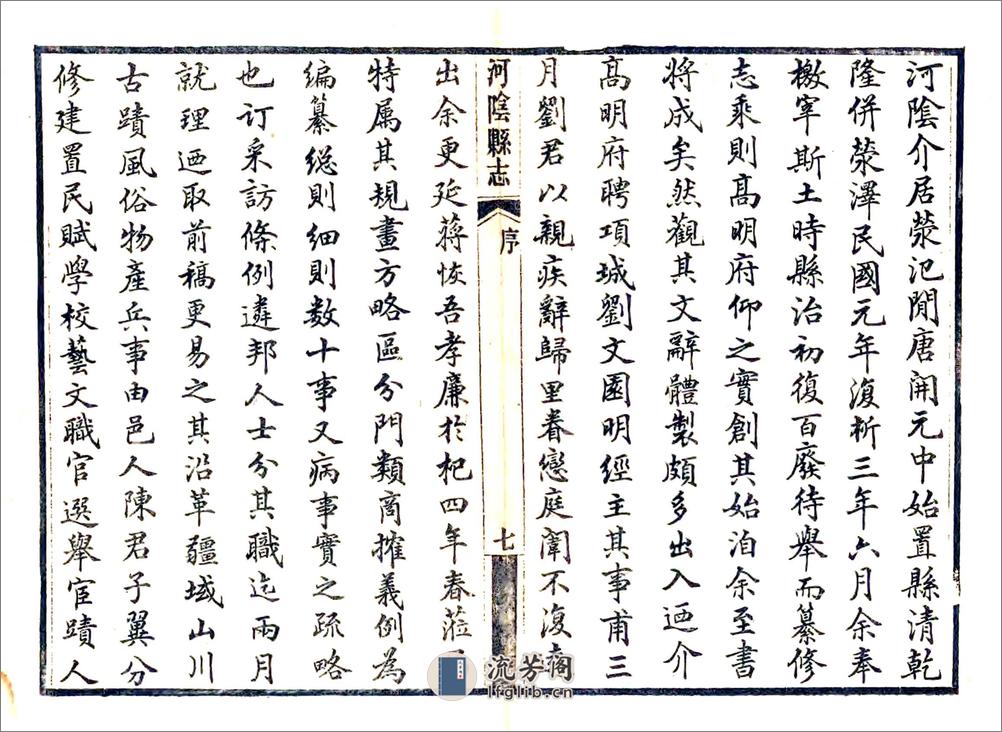 河陰介居滎汜閒唐開元中始置縣清乾
隆併滎澤民國元年復析三年六月余奉
檄宰斯土時縣治初復百廢待舉而纂修
志乘則髙明府仰之實創其始洎余至書
將成矣然觀其文辭體製頗多出入迺介
髙明府聘項城劉文園明經主其事甫三
月劉君以親疾辭歸里眷戀庭闈不復
河陰縣志
序
七
出余更延蔣恢吾孝廉於杞四年春蒞
特属其規畫方略區分門類商搉義例為
編纂総則細則数十事又病事實之疏略
也訂采訪條例遴邦人士分其職迄兩月
就理迺取前稿更易之其沿革疆域山川
古蹟風俗物產兵事由邑人陳君子翼分
修建置民賦學校藝文職官選舉宦蹟人
流芳阁
lfglib.cn